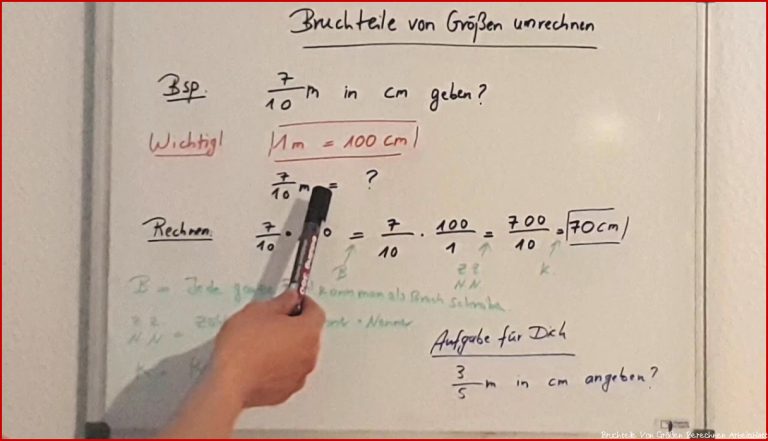 Bruchteile von Größen umrechnen
Bsp. 7/10 m in cm geben?
Wichtig! 1m = 100 cm
7/10 m = ?
Rechnen 7/10 · = 7/10 · 100/1 = 700/10 = 70 cm
B Z Z K
N N
B = Jede kann man als Bruch schreiben
Z Z =
N N Nenner
K =
Aufgabe für Dich
3/5 m in cm angeben?
Bruchteile Von Größen Berechnen